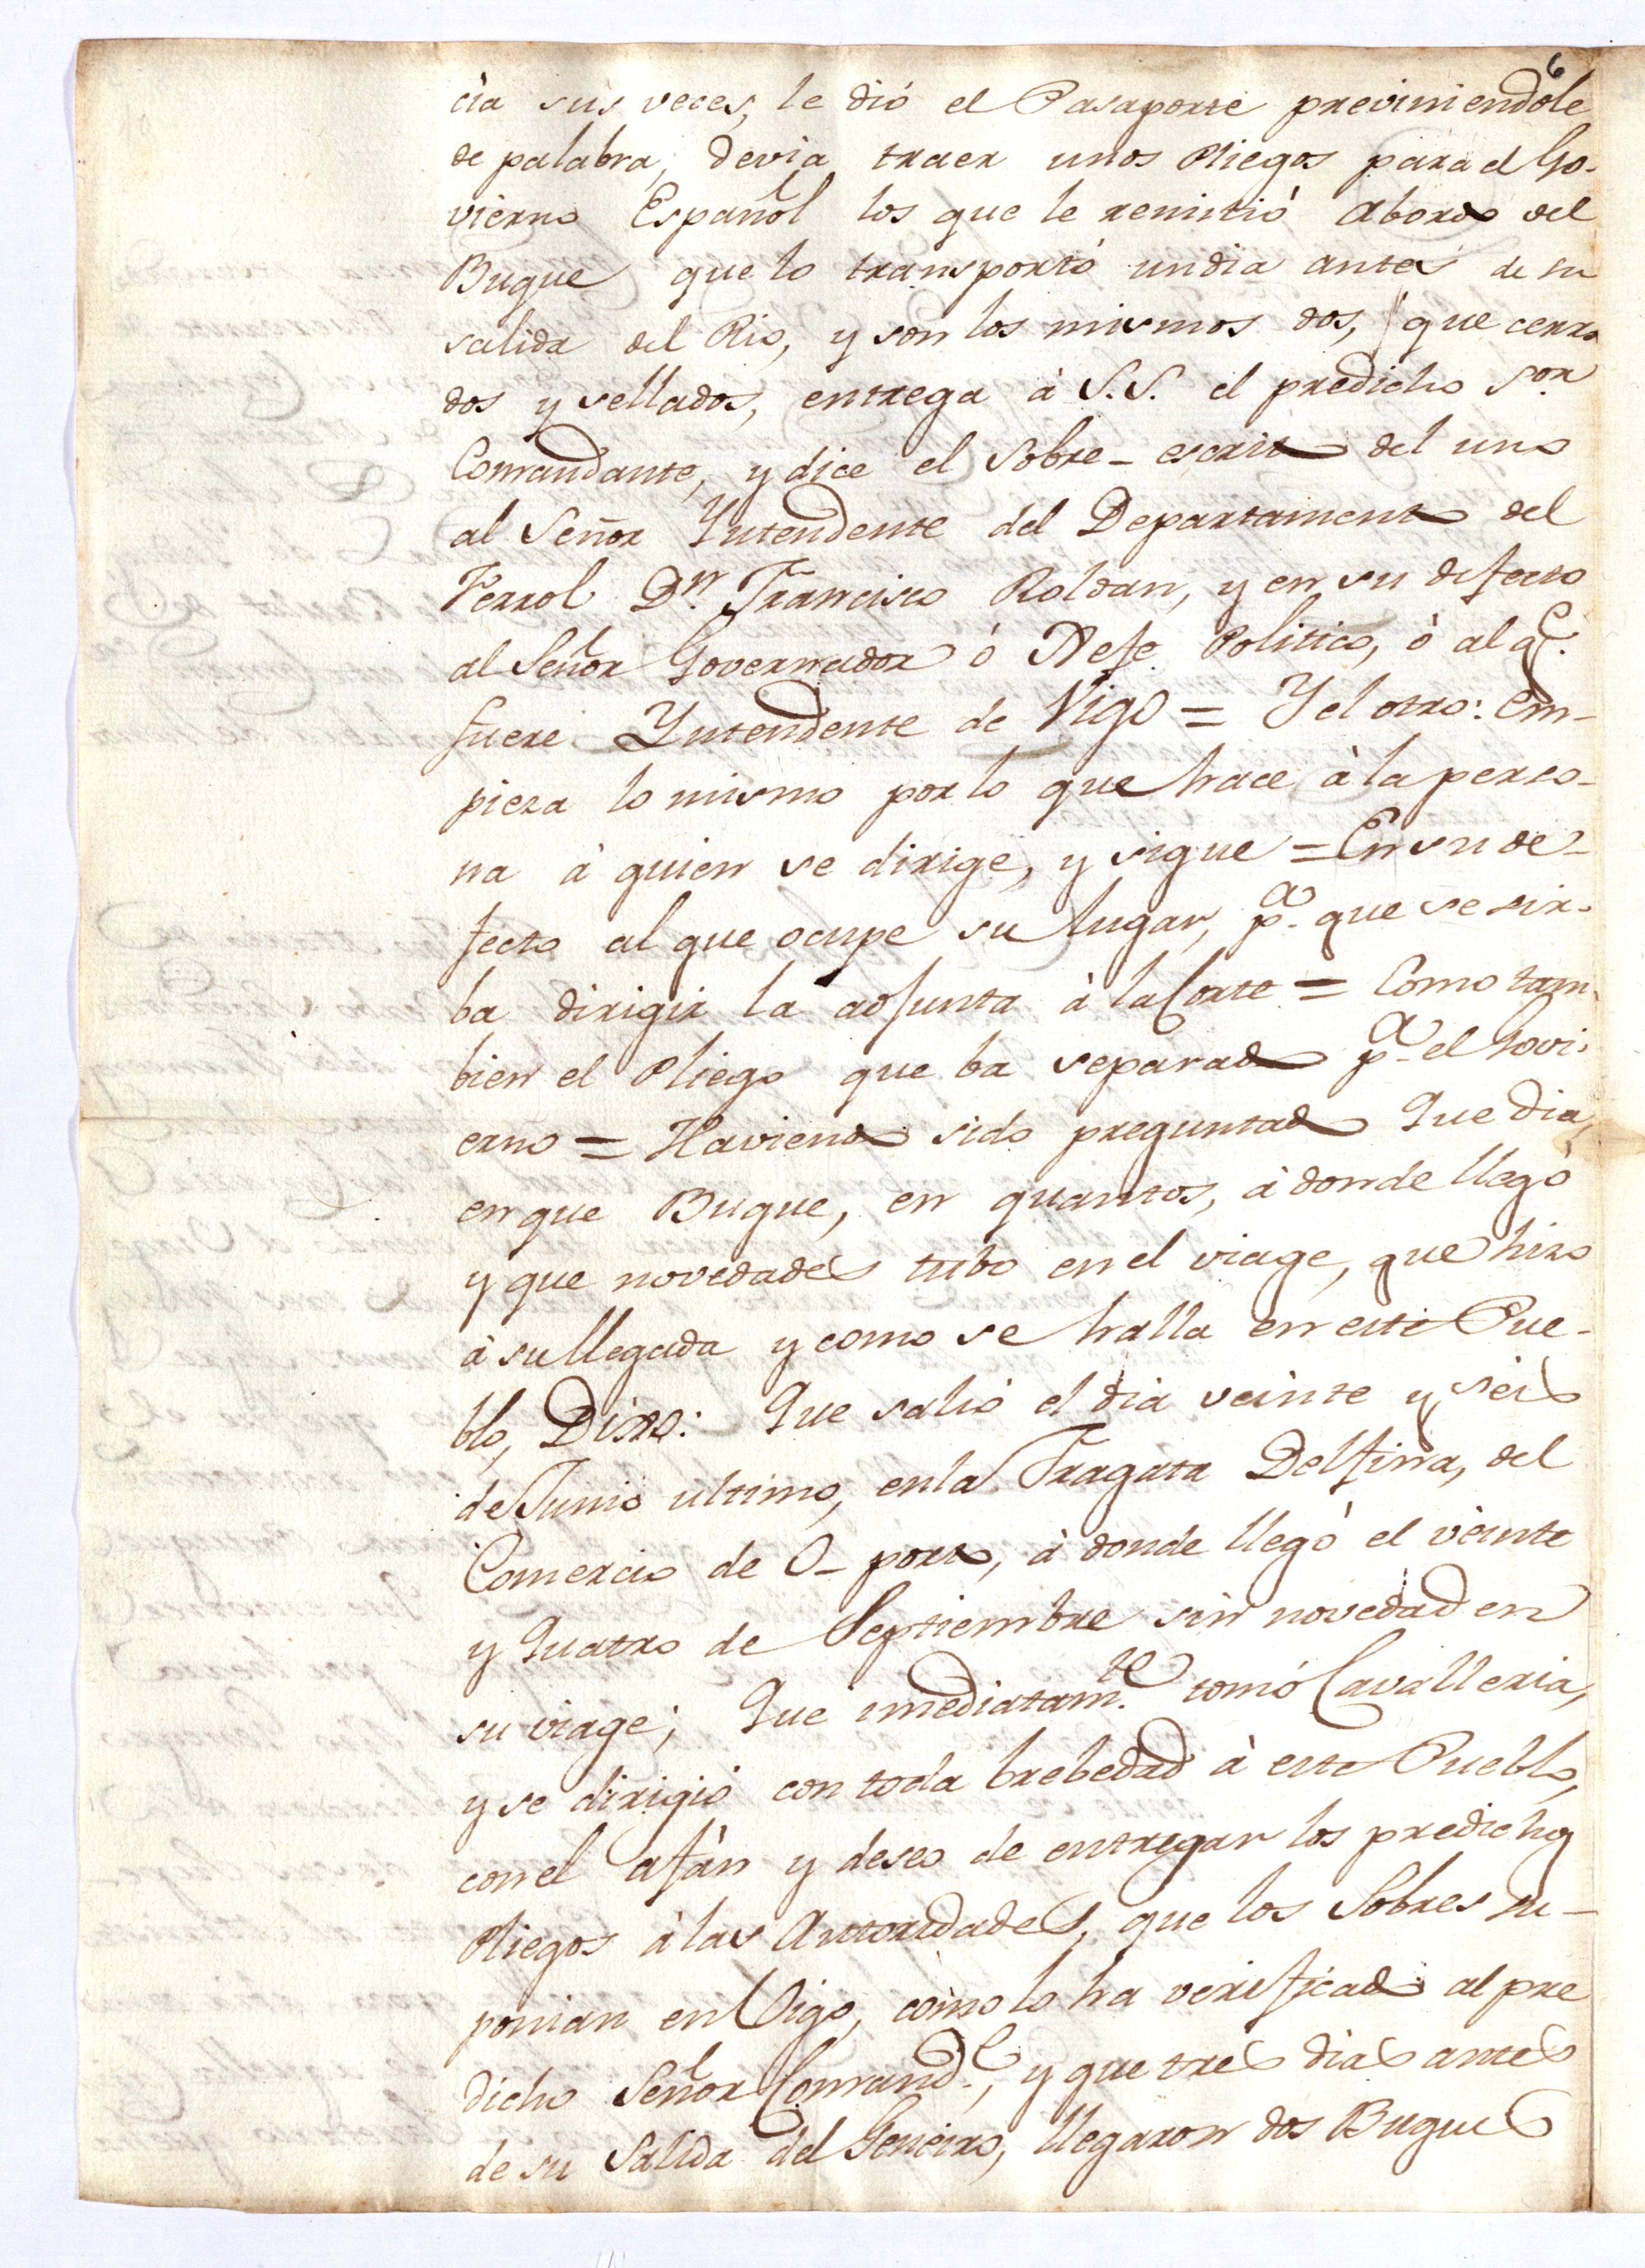 6
cia sus veces, le dió el Pasaporte previniendole
de palabra, devia traer unos Pliegos para el Go-
vierno Español los que le remitió abordo del
Buque que lo transportó undia antes de su
salida del Rio, y son los mismos dos, que cerra
dos y sellados, entrega à S.S. el predicho Sor.
Comandante, y dice el Sobre-escrito del uno
al Señor Yntendente del Departamento del
Ferrol Dn. Francisco Roldan, y en su defecto
al Señor Governador ó Xefe Politico, ò al qe.
fuere Yntendente de Vigo = Y el otro: Em-
pieza lo mismo por lo que hace à la perso-
na à quien se dirige, y sigue = En su de-
fecto al que ocupe su lugar, pa. que se sir-
ba dirigir la adjunta à la Corte = Como tam-
bien el Pliego que ba separado pa. el Govi-
erno = Haviendo sido preguntado Que dia,
en que Buque, en quantos, à donde llegó
y que novedades tubo en el viage, que hizo
à su llegada y como se halla en este Pue-
blo, Dixo: Que salió el dia veinte y seis
de Junio ultimo, en la Fragata Delfina, del
Comercio de O-porto, à donde llegó el veinte
y Quatro de Septiembre sin novedad en
su viage; Que imediatamte. tomó Cavalleria,
y se dirigió con toda brebedad à este Pueblo,
con el afàn y deseo de entregar los predichos
Pliegos à las Autoridades, que los Sobres su-
ponian en Vigo, como lo ha verificado al pre
dicho Señor Comande., y que tres dias antes
de su Salida del Geneiro, llegaron dos Buques